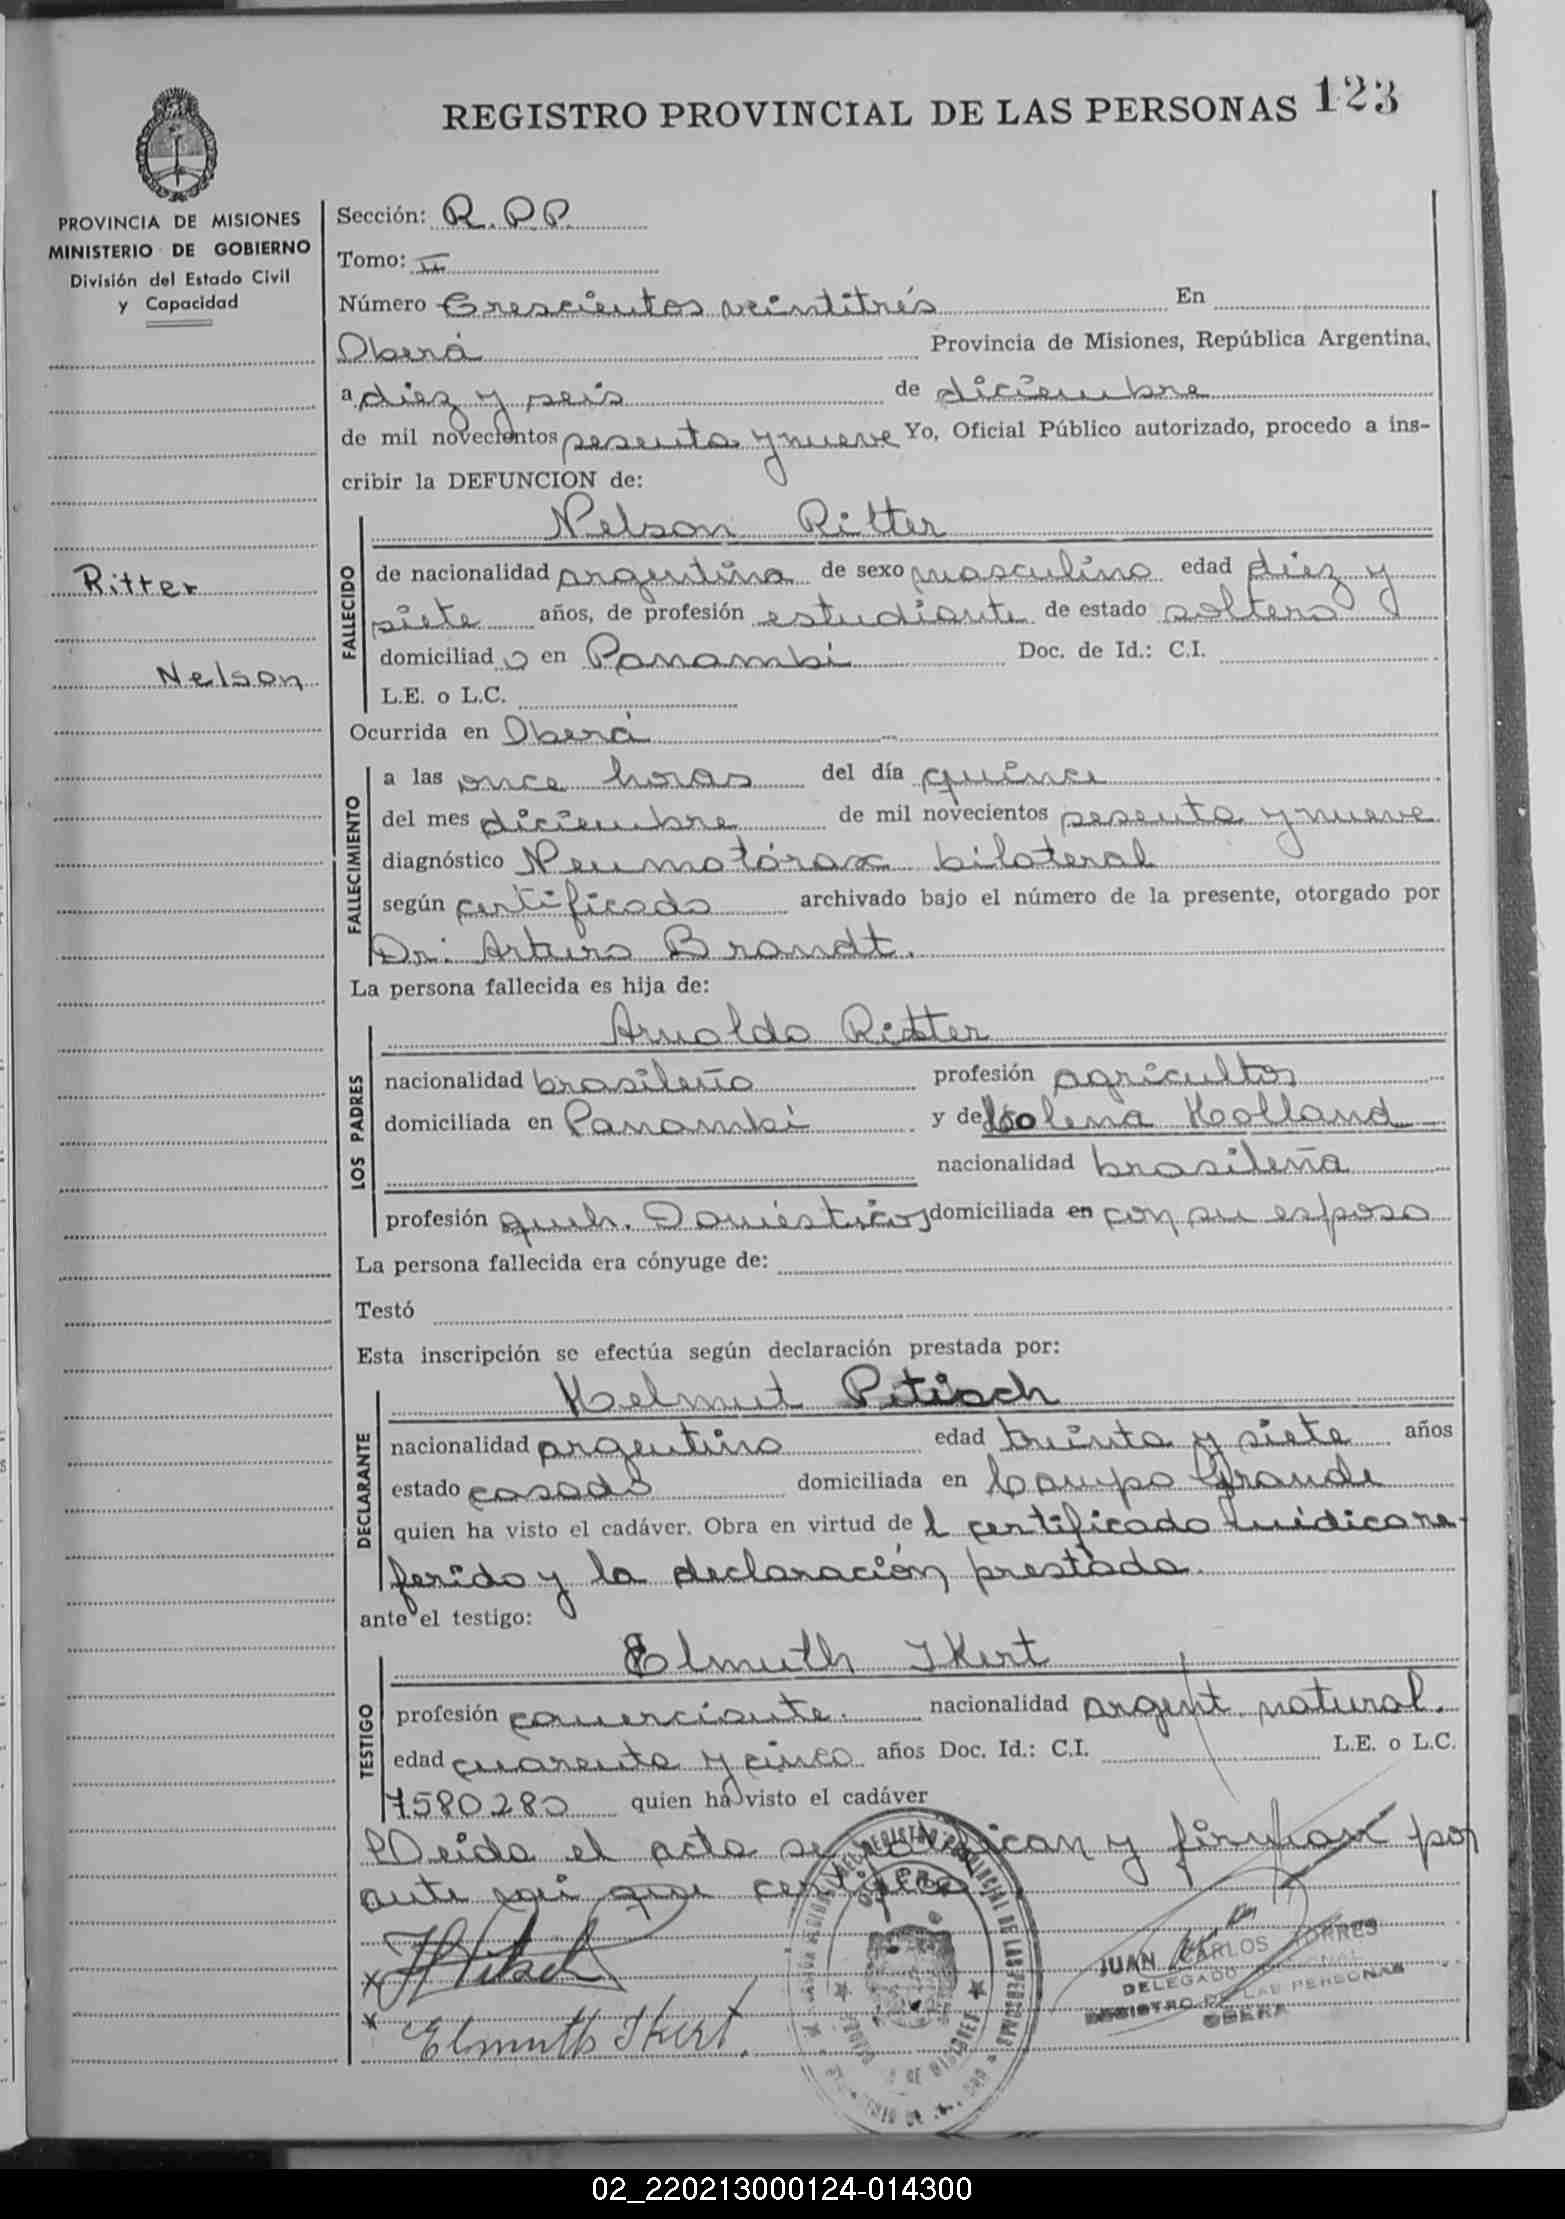 REGISTRO PROVINCIAL DE LAS PERSONAS 123
PROVINCIA DE MISIONES
MINISTERIO DE GOBIERNO
División del Estado Civil
y Capacidad
Ritter
Nelson
Sección: R.P.P.
Tomo: II
Número Trescientos veintitrés En
Oberá Provincia de Misiones, República Argentina,
a diez y seis de diciembre
de mil novecientos sesenta y nueve Yo, Oficial Público autorizado, procedo a ins-
cribir la DEFUNCION de:
FALLECIDO
Nelson Ritter
de nacionalidad argentina de sexo masculino edad diez y
siete años, de profesión estudiante de estado soltero
domiciliad o en Panambí Doc. de Id.: C.I.
L.E. o L.C.
Ocurrida en Oberá
FALLECIMIENTO
a las once horas del día quince
del mes diciembre de mil novecientos sesenta y nueve
diagnóstico Neumotórax bilateral
según certificado archivado bajo el número de la presente, otorgado por
Dr: Arturo Brandt.
La persona fallecida es hija de:
LOS PADRES
Arnoldo Ritter
nacionalidad brasileño profesión agricultor
domiciliada en Panambí y de Holena Holland
nacionalidad brasileña
profesión queh. Domésticos domiciliada en con su esposo
La persona fallecida era cónyuge de:
Testó
Esta inscripción se efectúa según declaración prestada por:
DECLARANTE
Helmut Pitisch
nacionalidad argentino edad treinta y siete años
estado casado domiciliada en Campo Grande
quien ha visto el cadáver. Obra en virtud de l certificado médico re-
ferido y la declaración prestada.
ante el testigo:
TESTIGO
Elmuth Ikert
profesión comerciante. nacionalidad argent. natural.
edad cuarenta y cinco años Doc. Id.: C.I. L.E. o L.C.
7580280 quien ha visto el cadáver
Leida el acta se ratifican y firman por
ante mi que certifico
Elmuth Ikert.
JUAN CARLOS TORRES
DELEGADO
REGISTRO DE LAS PERSONAS
OBERA
02_220213000124-014300